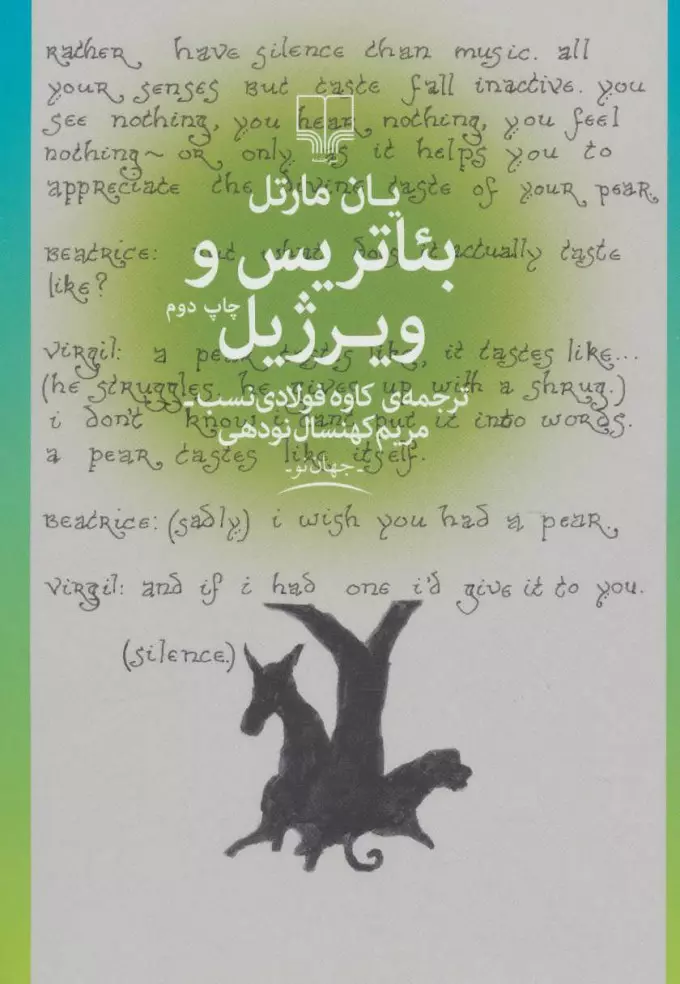 rather have silence than music. all
your senses but taste fall inactive. you
see nothing, you hear nothing, you feel
nothing~ or only as it helps you to
appreciate the divine taste of your pear.
beatrice: but what does it actually taste
like?
virgil: a pear tastes like, it tastes like...
(he struggles. he gives up with a shrug.)
i don't know. i can't put it into words.
a pear tastes like itself.
beatrice: (sadly) i wish you had a pear.
virgil: and if i had one i'd give it to you.
(silence.)
یان مارتل
بئاتریس و
ویرژیل چاپ دوم
ترجمه‌ی کاوه فولادی‌نسب ـ
مریم کهنسال نودهی
ـ جهان‌نو ـ